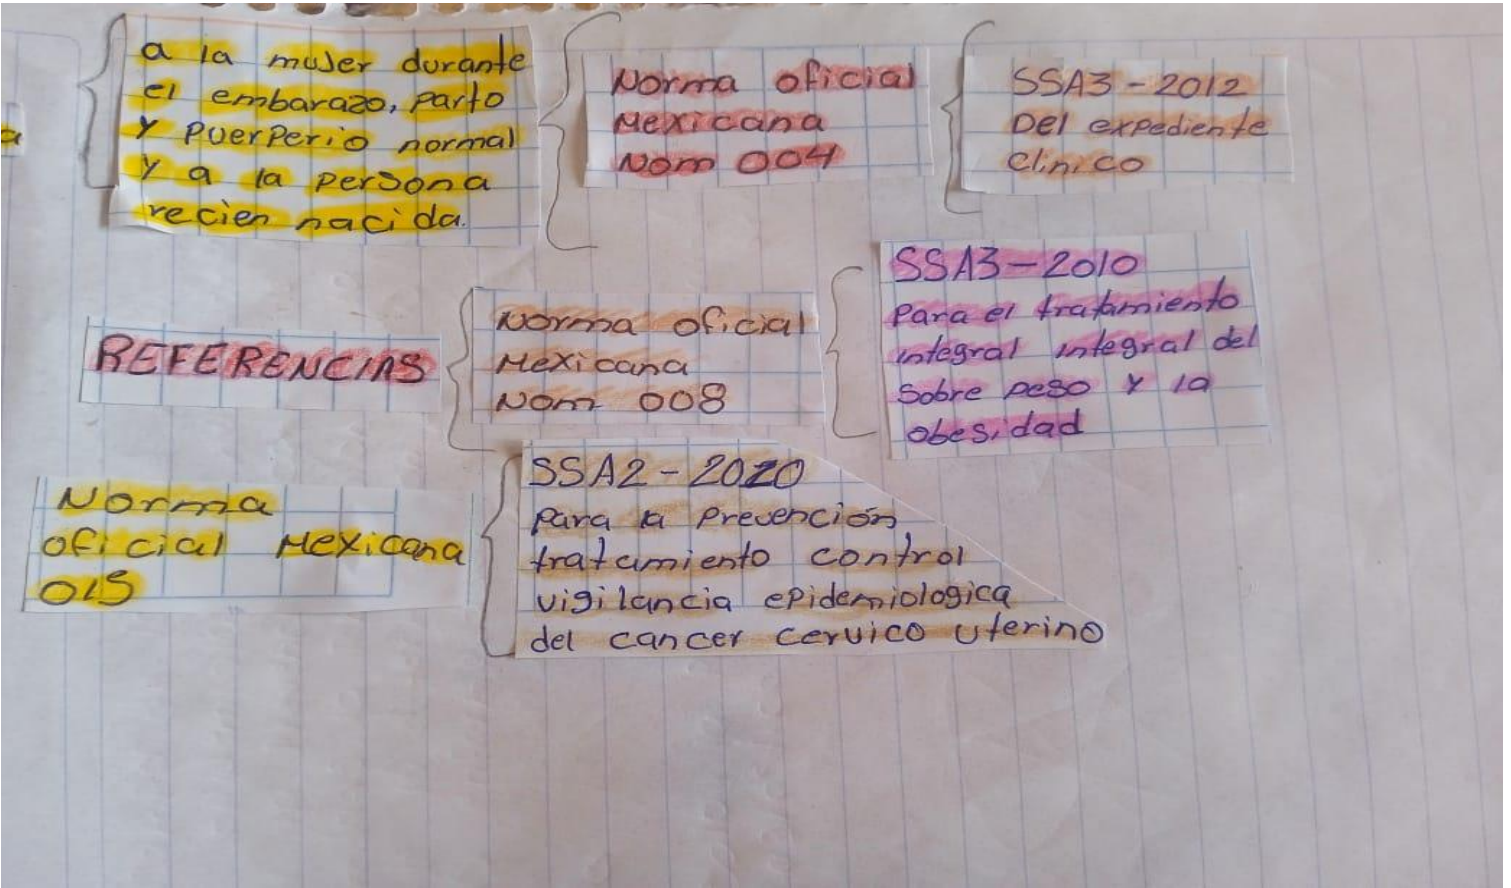 a
a la mujer durante
el embarazo, parto
y puerperio normal
y a la persona
recien nacida.
Norma oficial
Mexicana
Nom 004
SSA3-2012
Del expediente
Clinico
REFERENCIAS
Norma oficial
Mexicana
Nom 008
SSA3-2010
para el tratamiento
integral integral del
sobre peso y la
obesidad
Norma
oficial Mexicana
015
SSA2-2020
para la prevención
tratamiento control
vigilancia epidemiologica
del cancer cervico uterino